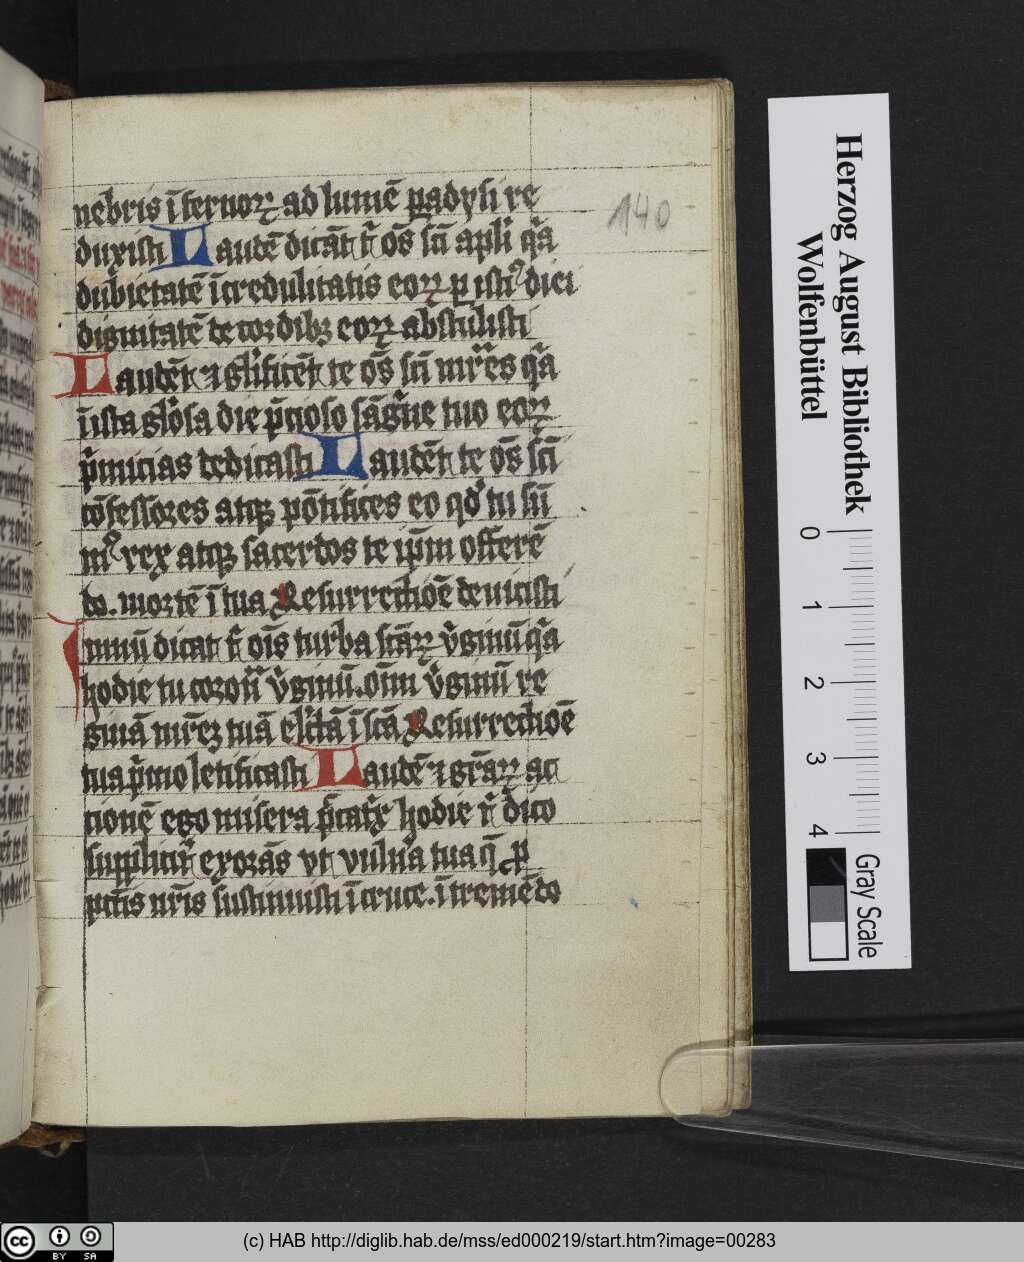 nebris īfernoꝝ ad lumē ꝑadysi re
duxisti Laudē dicāt t̄ oēs sc̄i apl̓i q̄a
dubietatē īcredulitatis eoꝝ ꝑ isti⁹ diei
dignitatē te cordibꝫ eoꝝ abstulisti
Laudēt ⁊ gl̓ificēt te oēs sc̄i mr̄es q̄a
ī ista gl̓osa die p̄cioso sāgu̓ie tuo eoꝝ
p̓micias dedicasti Laudēt te oēs sc̄i
cōfessores atqꝫ pōtifices eo qd̓ tu sū
m⁹ rex atqꝫ sacerdos te ip̄m offerē
do. mortē ī tua Resurrectiōe deuicisti
hodie tu v̓ginū. v̓ginū re
ginā mr̄eꝫ tuā ī sc̄a Resurrectiōe
tua p̓mo letificasti Laudē ⁊ gr̄aꝝ ac
tionē ego misera p̄cat̓x hodie t̄ dico
supplicit̓ exorās vt vuln̓a tua q̄ ꝓ
pctīs nr̄is sustinuisti ī cruce. ī tremēdo
140
Herzog August Bibliothek
Wolfenbüttel
0 1 2 3 4
Gray Scale
cc BY SA
(c) HAB http://diglib.hab.de/mss/ed000219/start.htm?image=00283